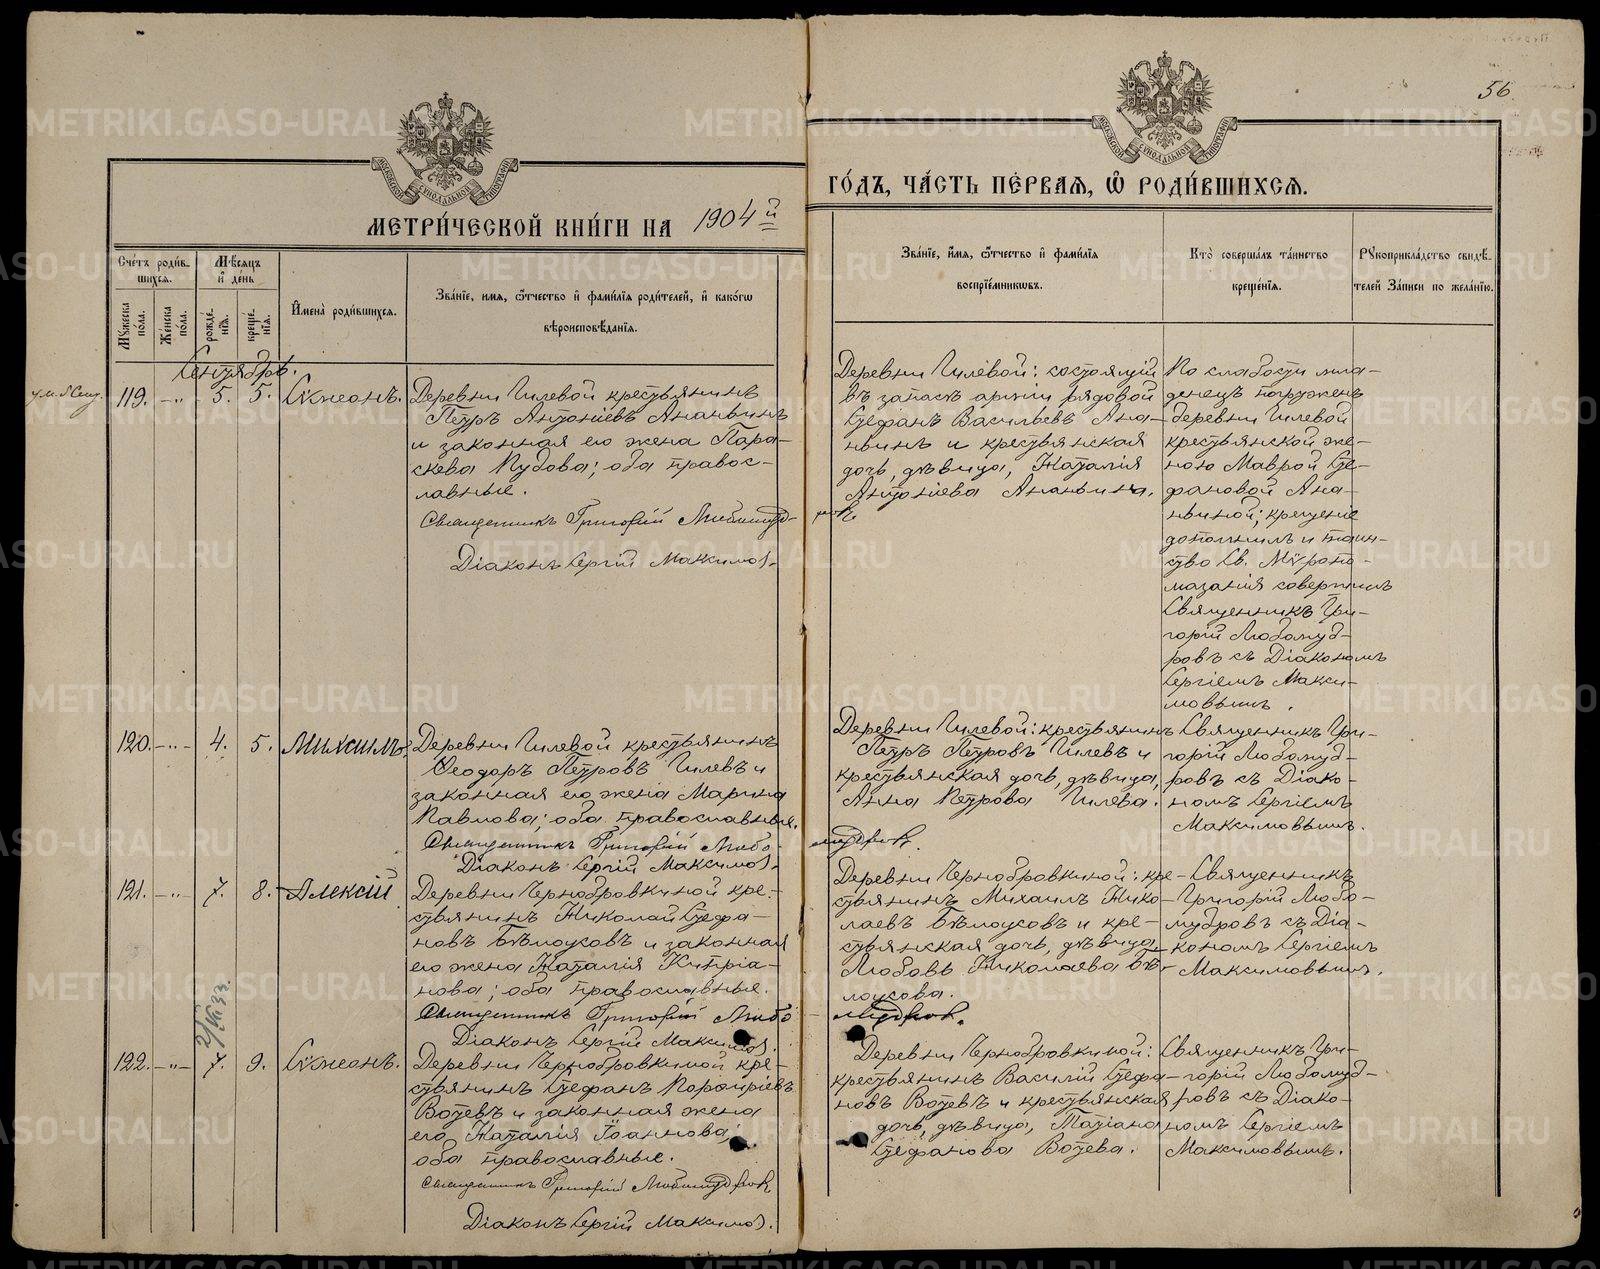 56
МЕТРИ́ЧЕСКОЙ КНИ́ГИ НА 1904й
ГО́ДЪ, ЧА́СТЬ ПЕ́РВАѦ, Ѡ҆ РОДИ́ВШИХСѦ.
Сче́тъ роди́в-
шихсѧ.
Мꙋжеска по́ла.
Же́нска по́ла.
Мѣ́сѧцъ
и҆ де́нь
рожде́-
нїѧ.
креще́-
нїѧ.
И҆мена̀ роди́вшихсѧ.
Зва́нїе, и҆мѧ, ѻ҆́тчество и҆ фами́лїѧ роди́телей, и҆ како́гѡ
вѣроисповѣ́данїѧ.
Зва́нїе, и҆́мѧ, ѻ҆́тчество и҆ фами́лїѧ
воспрїе́мникѡвъ.
Кто̀ соверша́лъ та́инство
креще́нїѧ.
Рꙋкоприкла́дство свидѣ́-
телей За́писи по жела́нїю.
Сентябрь.
119. -"- 5. 5. Сѵмеонъ.
Деревни Гилевой крестьянинъ
Петръ Антонiевъ Ананьинъ
и законная его жена Пара-
скева Иудова; оба правос-
лавные.
Священникъ Григорiй Любомуд-
ровъ
Дiаконъ Сергiй Максимов.
Деревни Гилевой: состоящiй
въ запасѣ армiи рядовой
Стефанъ Васильевъ Ана-
ньинъ и крестьянская
дочь, дѣвица, Наталiя
Антонiева Ананьина.
По слабости мла-
денецъ погруженъ
деревни Гилевой
крестьянской же-
ною Маврой Сте-
фановой Ана-
ньиной; крещенiе
дополнилъ и таин-
ство Св. Мѵропо-
мазанiя совершилъ
Священникъ Гри-
горiй Любомуд-
ровъ съ Дiакономъ
Сергiемъ Макси-
мовымъ.
120. -"- 4. 5. Михаилъ.
Деревни Гилевой крестьянинъ
Ѳеодоръ Петровъ Гилевъ и
законная его жена Марина
Павлова; оба православные.
Священникъ Григорiй Любо-
мудровъ.
Дiаконъ Сергiй Максимов.
Деревни Гилевой: крестьянинъ
Петръ Петровъ Гилевъ и
крестьянская дочь, дѣвица,
Анна Петрова Гилева.
Священникъ Гри-
горiй Любомуд-
ровъ съ Дiако-
номъ Сергiемъ
Максимовымъ.
121. -"- 7. 8. Алексiй
Деревни Чернобровкиной кре-
стьянинъ Николай Стефа-
новъ Бѣлоусовъ и законная
его жена Наталiя Кипрiа-
нова; оба православные.
Священникъ Григорiй Любо-
мудров.
Дiаконъ Сергiй Максимов.
Деревни Чернобровкиной: кре-
стьянинъ Михаилъ Нико-
лаевъ Бѣлоусовъ и кре-
стьянская дочь, дѣвица
Любовь Николаева Бѣ-
лоусова.
Священникъ
Григорiй Любо-
мудровъ съ Дiа-
кономъ Сергiемъ
Максимовымъ.
122. -"- 7. 9. Сѵмеонъ.
Деревни Чернобровкиной кре-
стьянинъ Стефанъ Порфирiевъ
Вотевъ и законная жена
его Наталiя Iоаннова;
оба православные.
Священникъ Григорiй Любомудровъ
Дiаконъ Сергiй Максимов.
Деревни Чернобровкиной:
крестьянинъ Василiй Стефа-
новъ Вотевъ и крестьянская
дочь, дѣвица, Татiана
Стефанова Вотева.
Священникъ Гри-
горiй Любомуд-
ровъ съ Дiако-
номъ Сергiемъ
Максимовымъ.
METRIKI.GASO-URAL.RU